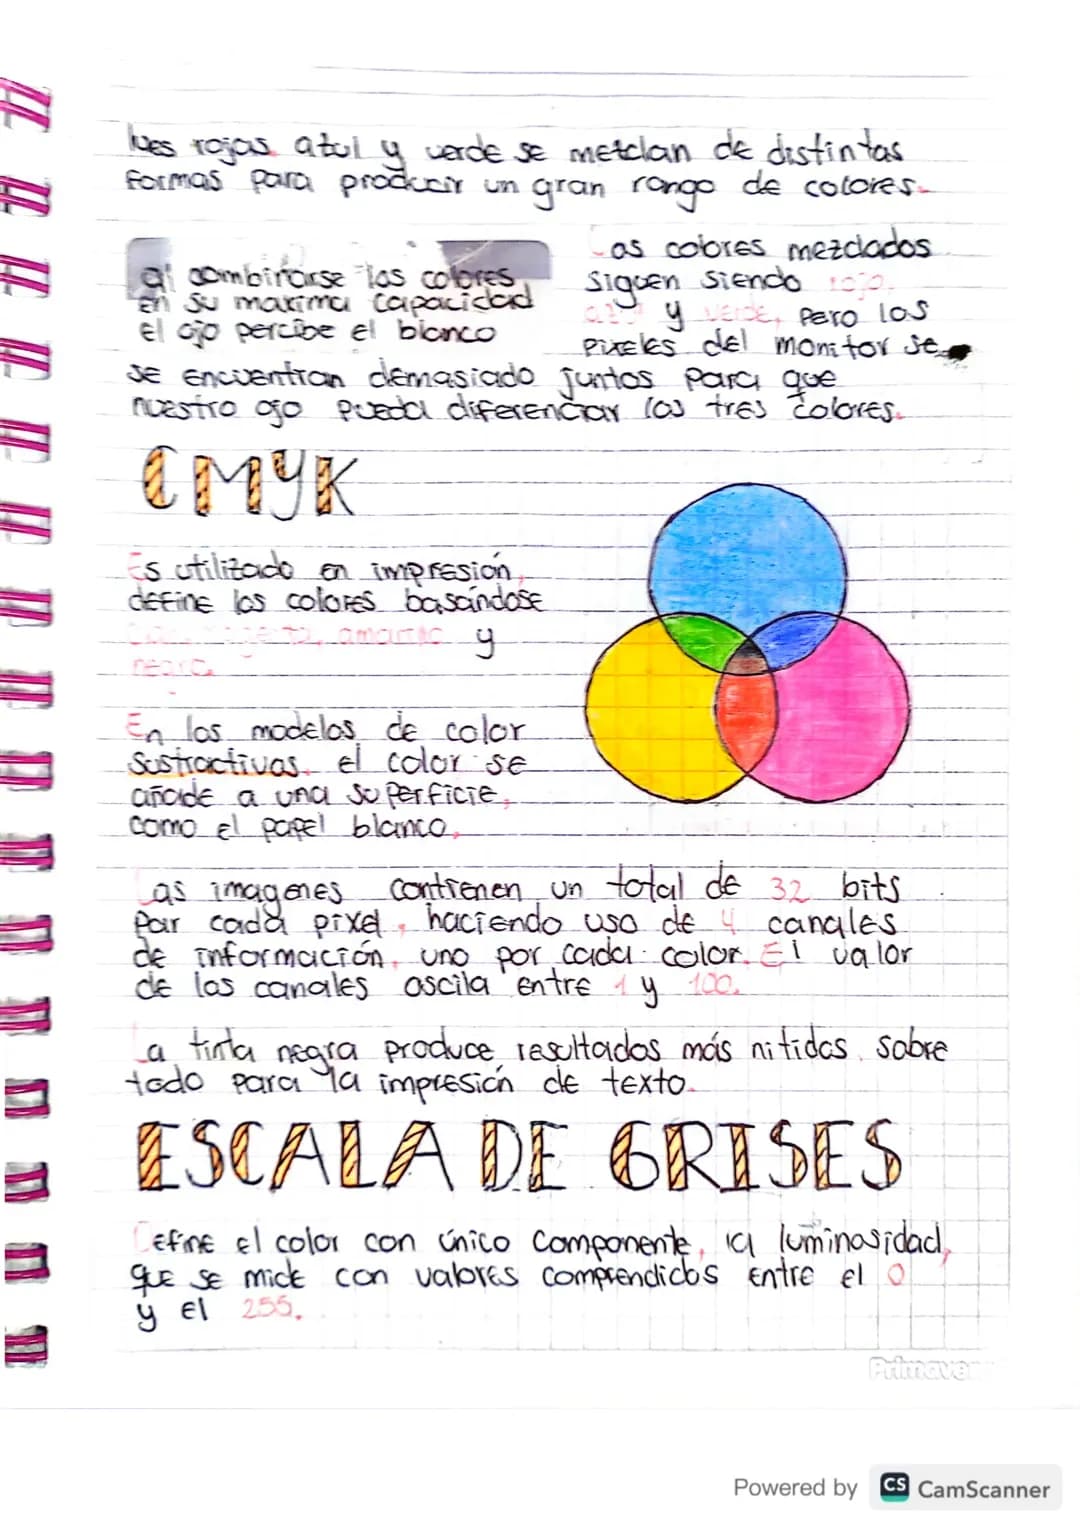 luces rojas azul y verde se mezclan de distintas
formas para producir un gran rango de colores.
al combinarse los colores
en su maxima capacidad
el ojo percibe el blanco
Los colores mezclados
siguen siendo rojo,
azul y verde, pero los
pixeles del monitor se
se encuentran demasiado juntos para que
nuestro ojo pueda diferenciar los tres colores.
CMYK
Es utilizado en impresión,
define los colores basándose
magenta, amarillo y
negro.
En los modelos de color
sustractivos, el color se
añade a una superficie,
como el papel blanco.
Las imagenes contienen un total de 32 bits
por cada pixel, haciendo uso de 4 canales
de información, uno por cada color. El valor
de los canales oscila entre 1 y 100.
La tinta negra produce resultados más nitidos, sobre
todo para la impresión de texto.
ESCALA DE GRISES
Define el color con único componente, la luminosidad,
que se mide con valores comprendidos entre el 0
y el 255.
Primaver
Powered by CS CamScanner